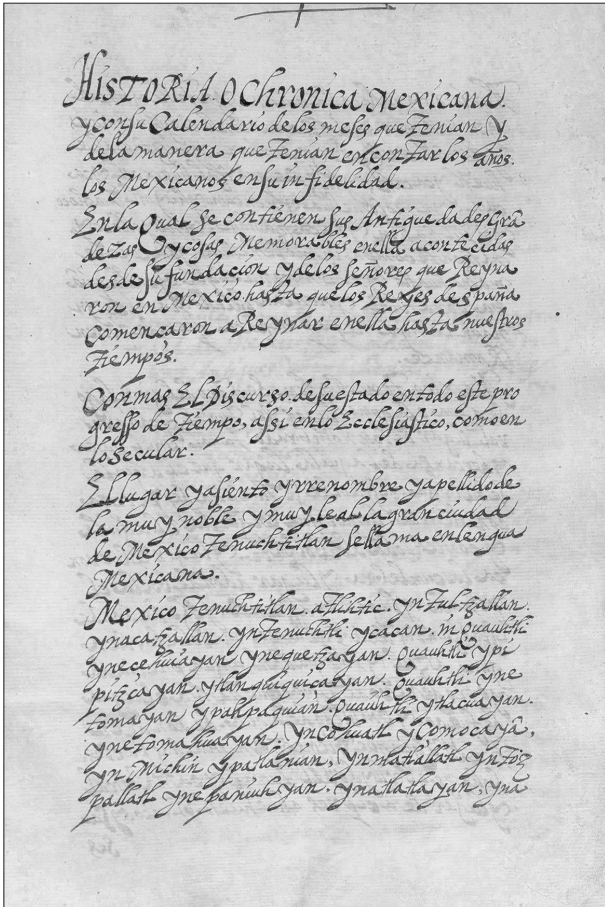 HISTORIA. O Chronica Mexicana.
y con su Calendario de los meses que Tenian y
de la manera que Tenian en contar los años.
los Mexicanos en su infidelidad.
En la Qual se contienen sus Antiguedades Grã
dezas y cosas Memorables en ella acontecidas
desde su fundacion y de los señores que Reyna
ron en Mexico hasta que los Reyes de españa
Comencaron a Reynar en ella hasta nuestros
Tiempos.
Con mas El Discurso. de su estado en todo este pro
gresso de Tiempo, assi en lo Ecclesiastico, como en
lo secular.
El lugar y asiento y rrenombre y apellido de
la muy noble y muy leal la gran ciudad
de Mexico Tenuchtitlan se llama en lengua
Mexicana.
Mexico Tenuchtitlan. atlihtic. yn Tultzallan.
ynacatzallan. yn Tenuchtli ycacan. in Quauhtli
ynecehuiayan ynequetzayan. Quauhtli ypi
pitzcayan. ytlanquiquicayan. Quauhtli yne
tomayan ypahpaquian. Quauhtli ytlacuayan.
ynetomahuayan. yn Cohuatl yComocayã,
yn Michin ypatlanian, ynmatlallatl yn Toz
pallatl ynepaniuhyan. ynatlatlayan, yna